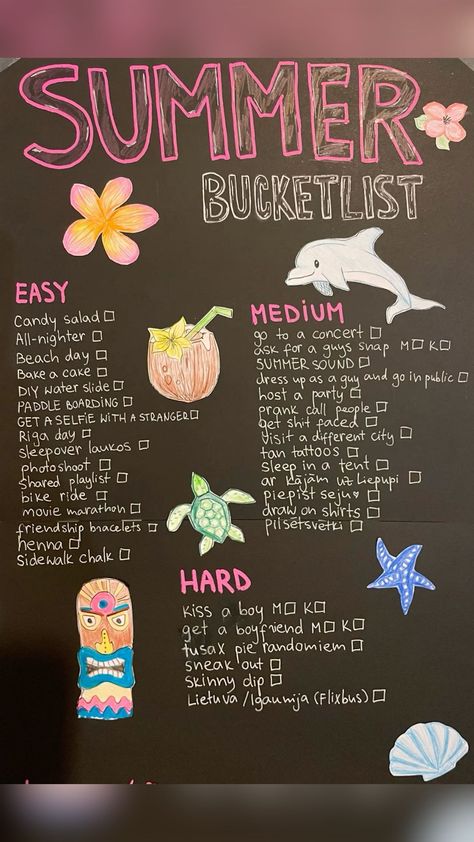 SUMMER
BUCKETLIST
EASY
Candy salad
All-nighter
Beach day
Bake a cake
DIY water slide
PADDLE BOARDING
GET A SELFIE WITH A STRANGER
Riga day
sleepover laukos
photoshoot
shared playlist
bike ride
movie marathon
friendship bracelets
henna
Sidewalk chalk
MEDIUM
go to a concert
ask for a guys snap M K
SUMMER SOUND
dress up as a guy and go in public
host a party
prank call people
get shit faced
Visit a different city
tan tattoos
sleep in a tent
ar kājām uz Liepupi
piepist seju
draw on shirts
pilsētsvētki
HARD
kiss a boy M K
get a boyfriend M K
tusax pie randomiem
sneak out
skinny dip
Lietuva / Igaunija (Flixbus)